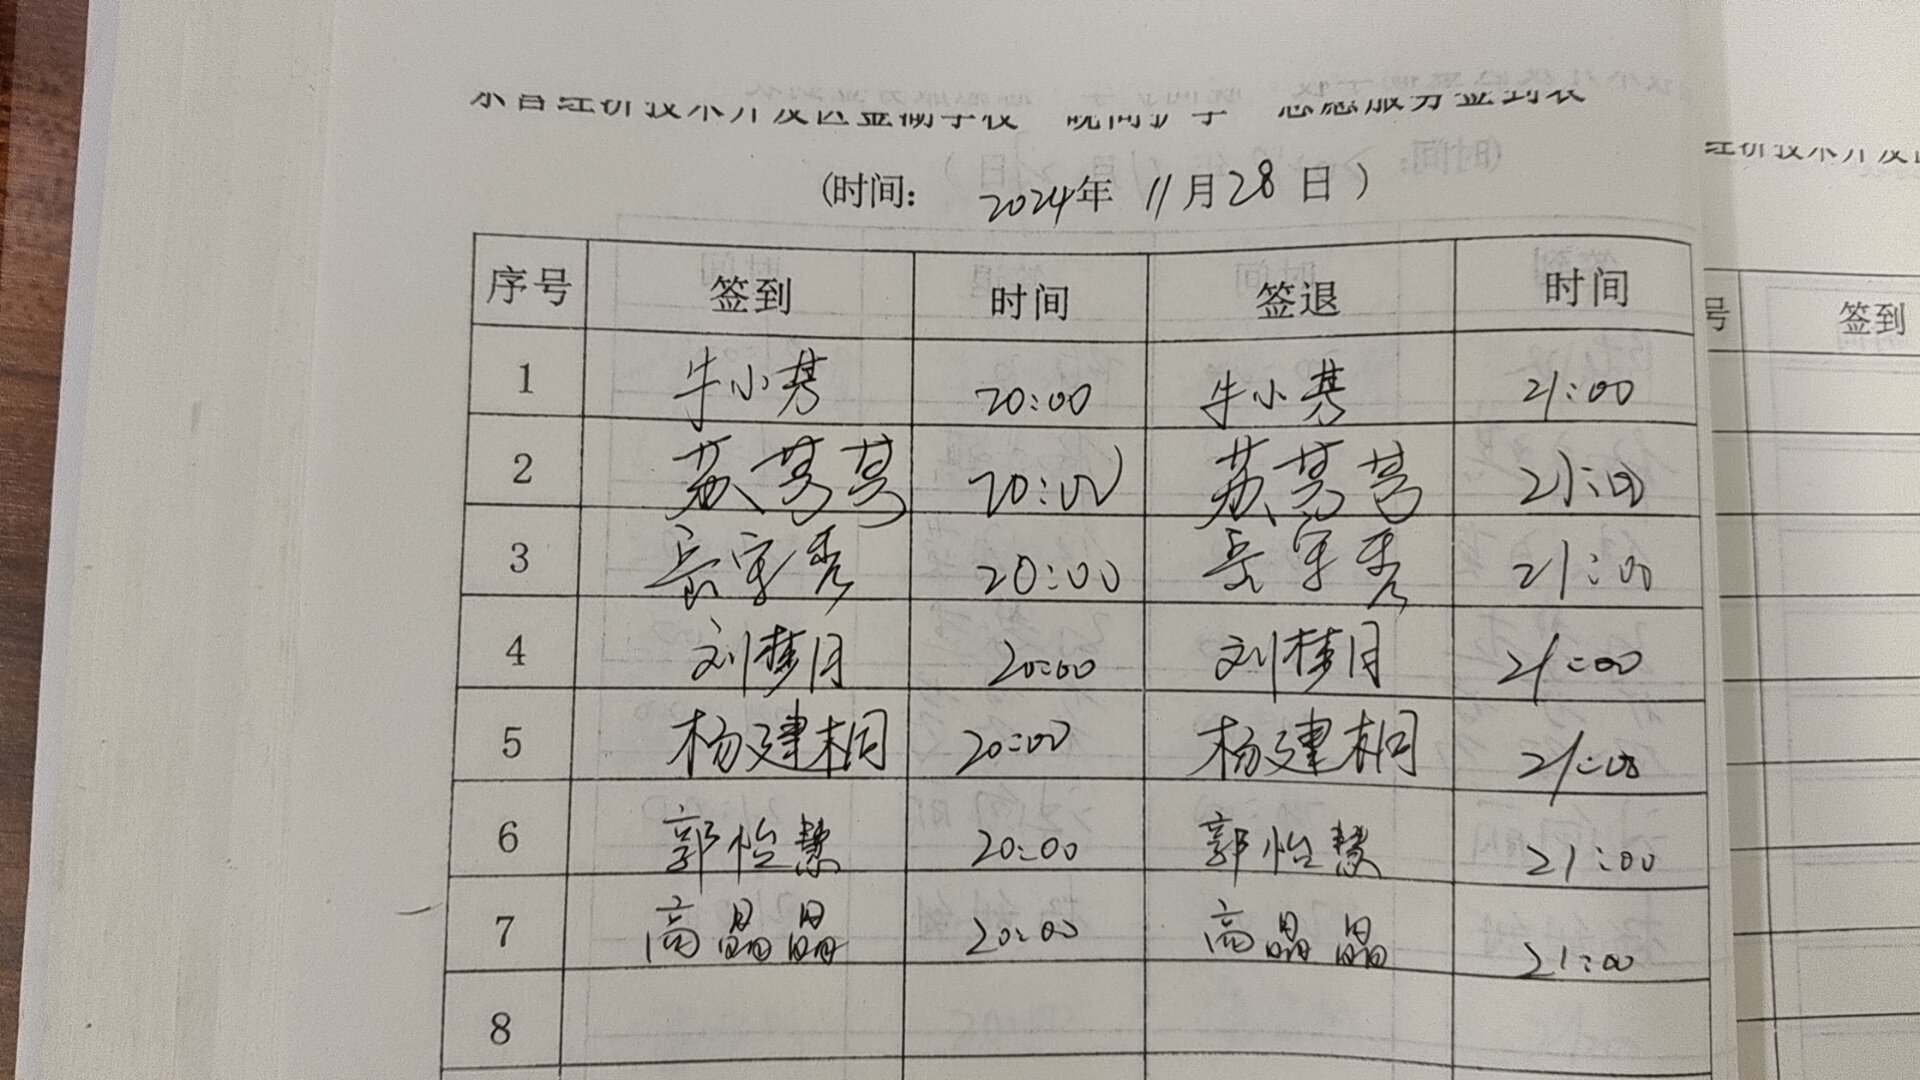 东营经济技术开发区金湖学校“晚间护学”志愿服务签到表
(时间: 2024年 11月28日)
序号 签到 时间 签退 时间
1 牛小慕 20:00 牛小慕 21:00
2 苏芳芳 20:00 苏芳芳 21:00
3 20:00 21:00
4 刘梦月 20:00 刘梦月 21:00
5 杨建桐 20:00 杨建桐 21:00
6 郭怡慧 20:00 郭怡慧 21:00
7 高晶晶 20:00 高晶晶 21:00
8
经济技术开发区
号 签到